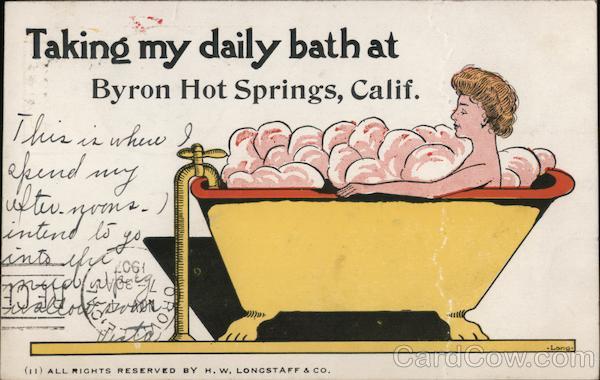 Taking my daily bath at
Byron Hot Springs, Calif.
This is where I
spend my
after noons. I
intend to go
into the
mud
1907
-Long-
(11) ALL RIGHTS RESERVED BY H. W. LONGSTAFF & CO.
CardCow.com